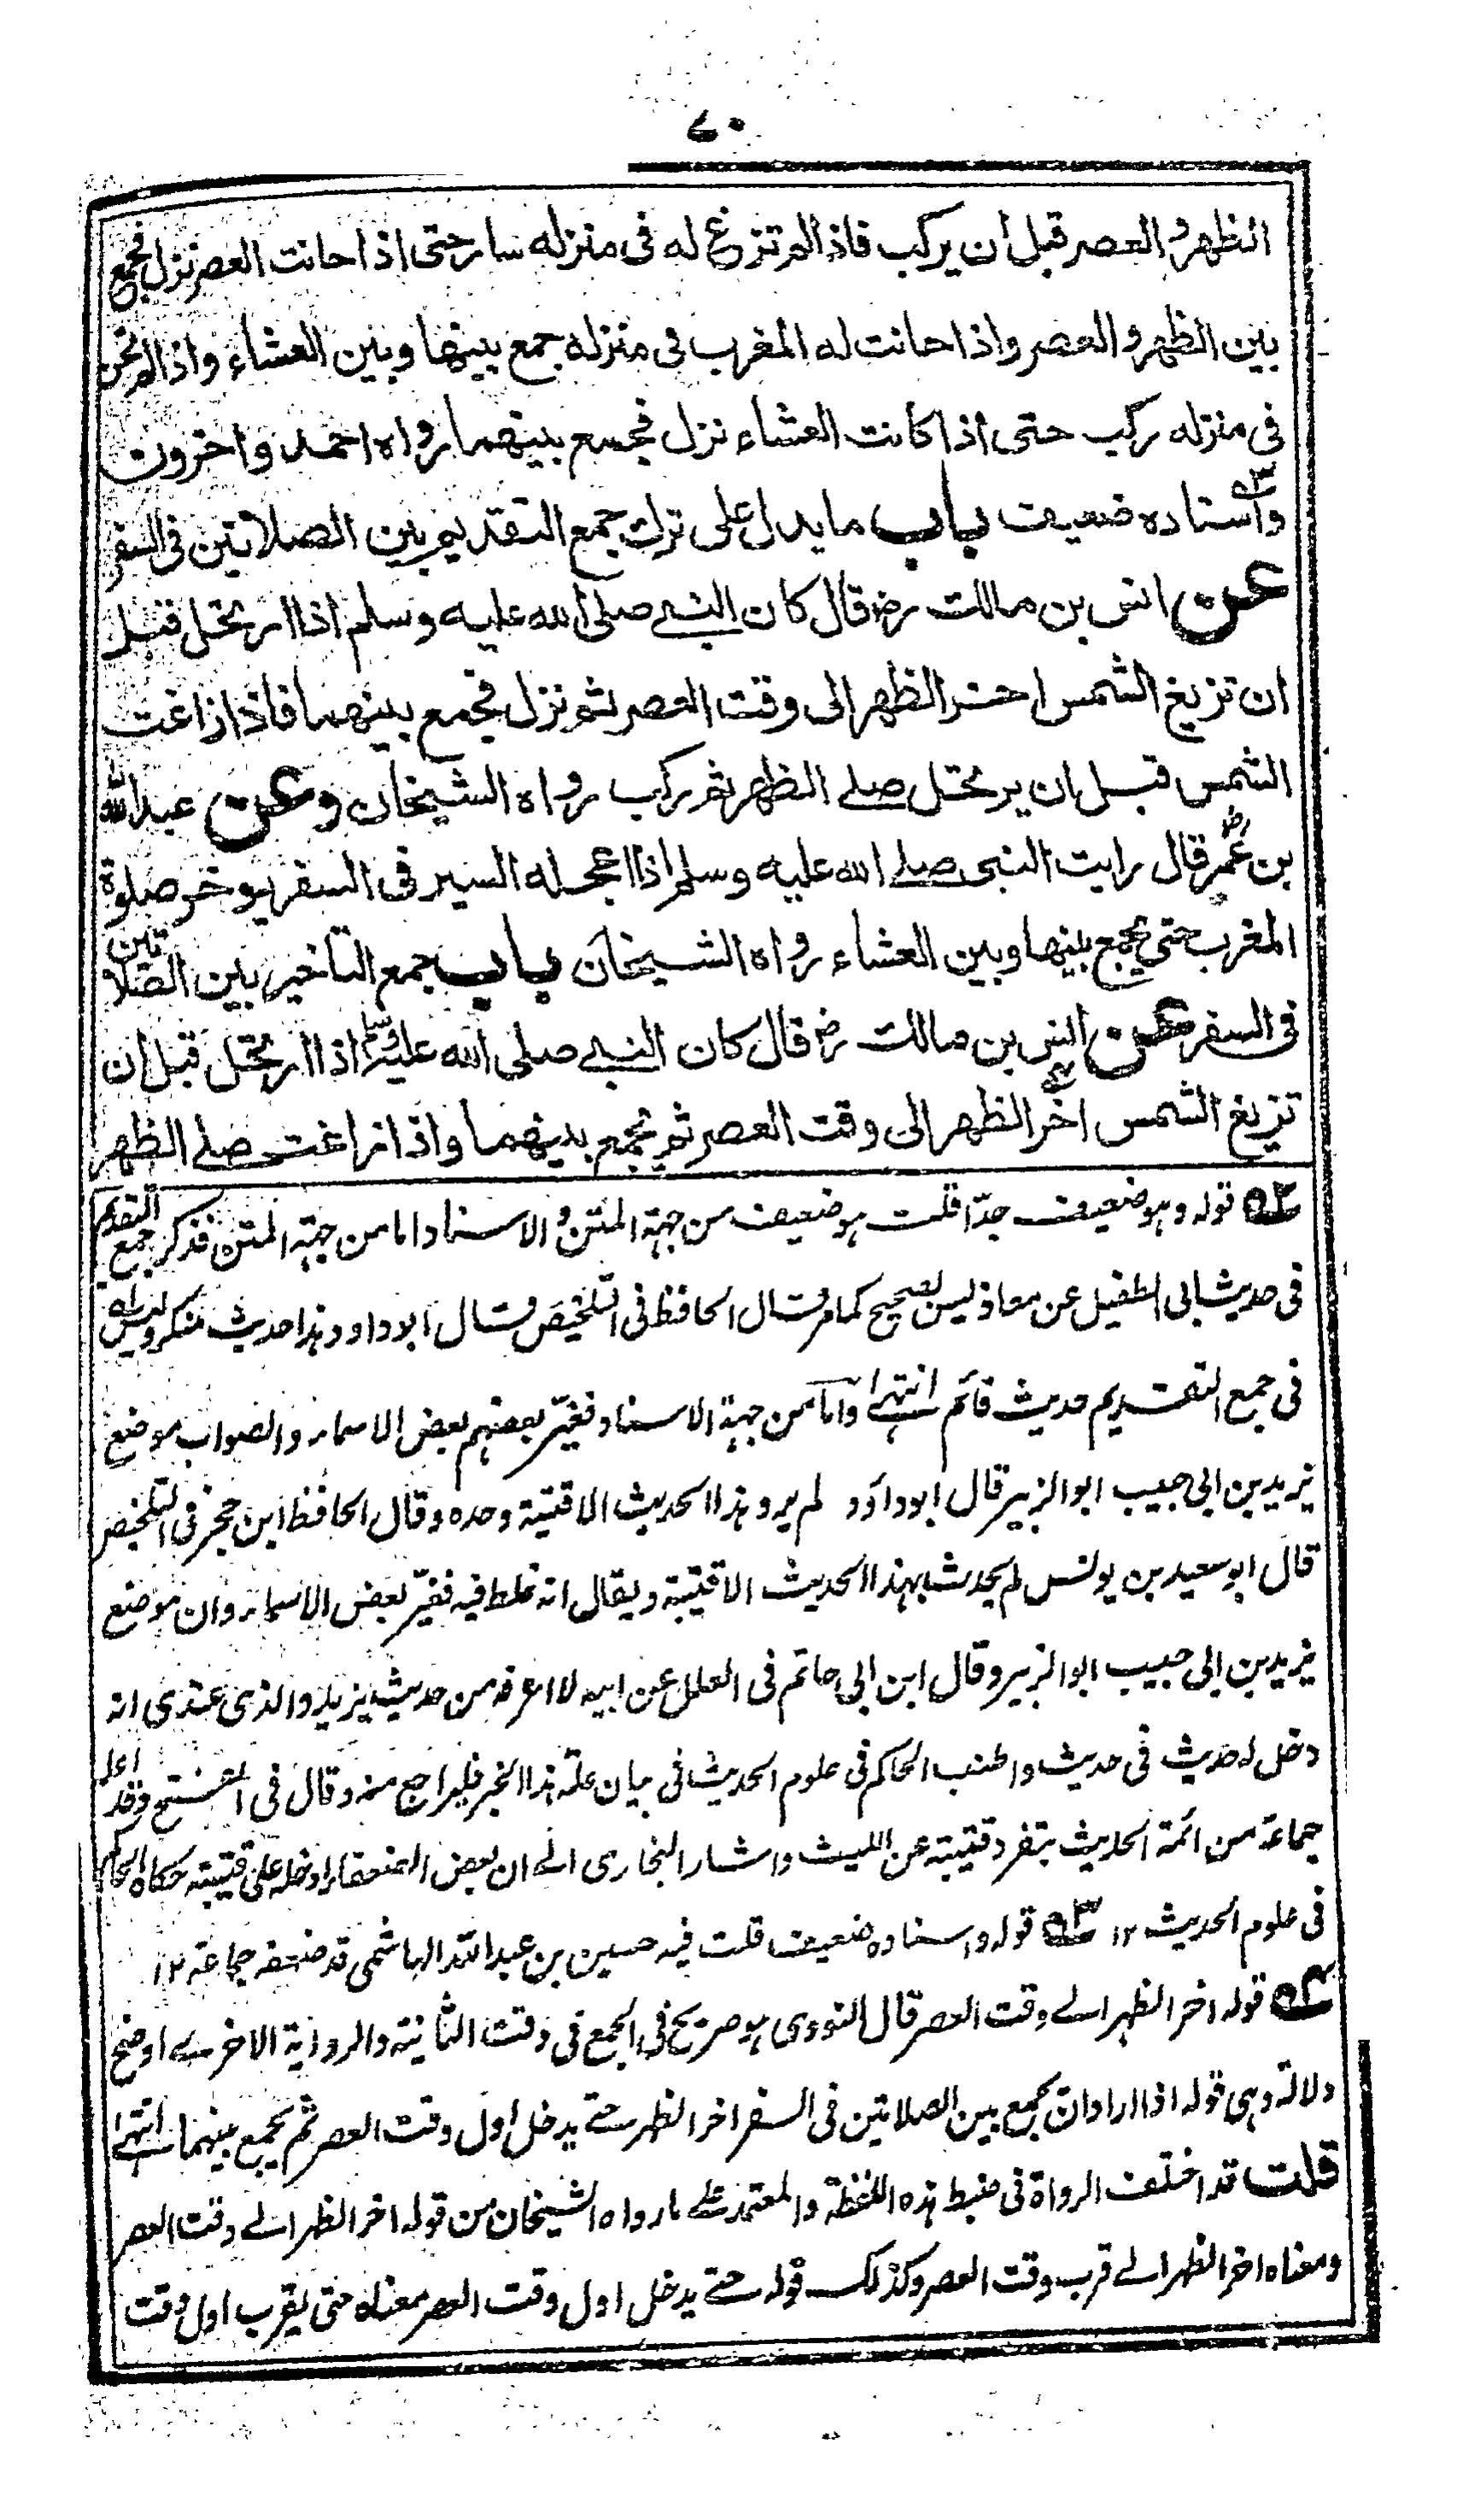 ٧٠
الظهر و العصر قبل أن يركب فاذا لم تزغ له فى منزله سار حتى اذا حانت العصر نزل فجمع
بين الظهر و العصر و اذا حانت له المغرب فى منزله جمع بينها و بين العشاء و اذا لم تحن
فى منزله ركب حتى اذا كانت العشاء نزل فجمع بينهما رواه احمد و اخرون
و اسناده ضعيف باب ما يدل على ترك جمع التقديم بين الصلاتين فى السفر
عن انس بن مالك رض قال كان النبى صلى الله عليه و سلم اذا ارتحل قبل
ان تزيغ الشمس اخر الظهر الى وقت العصر ثم نزل فجمع بينهما فاذا زاغت
الشمس قبل ان يرتحل صلے الظهر ثم ركب رواه الشيخان و عن عبد الله
بن عمر رض قال رايت النبى صلے الله عليه و سلم اذا اعجله السير فى السفر يوخر صلوة
المغرب حتى يجمع بينها و بين العشاء رواه الشيخان باب جمع التاخير بين الصلاتين
فى السفر عن انس بن مالك رض قال كان النبے صلى الله عليه وسلم اذا ارتحل قبل ان
تزيغ الشمس اخر الظهر الى وقت العصر ثم يجمع بينهما و اذا زاغت صلے الظهر
۵۲ قوله و هو ضعيف جدّا قلت هو ضعيف من جهة المتن و الاسناد اما من جهة المتن فذكر جمع التقديم
فى حديث ابى الطفيل عن معاذ ليس بصحيح كما قال الحافظ فى التلخيص قال ابو داود هذا حديث منكر و ليس
فى جمع التقديم حديث قائم انتهے و اما من جهة الاسناد فغيّر بعضهم بعض الاسماء و الصواب موضع
يزيد بن ابى حبيب ابو الزبير قال ابو داؤد لم يرو هذا الحديث الا قتيبة وحده و قال الحافظ ابن حجر فى التلخيص
قال ابو سعيد بن يونس لم يحدث بهذا الحديث الا قتيبة و يقال انه غلط فيه فغيّر بعض الاسماء و ان موضع
يزيد بن ابى حبيب ابو الزبير و قال ابن ابى حاتم فى العلل عن ابيه لا اعرفه من حديث يزيد و الذى عندى انه
دخل له حديث فى حديث و اطنب الحاكم فى علوم الحديث فى بيان علة هذا الخبر فليراجع منه و قال فى الفتح و قد اعله
جماعة من ائمة الحديث بتفرد قتيبة عن الليث و اشار البخارى الے ان بعض الضعفاء ادخله على قتيبة حكاه الحاكم
فى علوم الحديث ١٢ ۵۳ قوله و اسناده ضعيف قلت فيه حسين بن عبد الله الهاشمى قد ضعفه جماعة ١٢
۵۴ قوله اخر الظهر الے وقت العصر قال النووى هو صريح فى الجمع فى وقت الثانية و الرواية الاخرے اوضح
دلالة و هى قوله اذا اراد ان يجمع بين الصلاتين فى السفر اخر الظهر حتے يدخل اول وقت العصر ثم يجمع بينهما انتهے
قلت قد اختلف الرواة فى ضبط هذه اللفظة و المعتمد علے ما رواه الشيخان من قوله اخر الظهر الے وقت العصر
و معناه اخر الظهر الے قرب وقت العصر و كذلك قوله حتے يدخل اول وقت العصر معناه حتى يقرب اول وقت